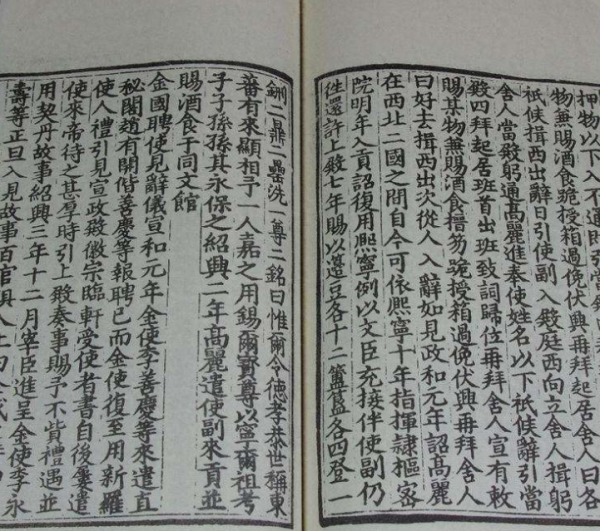 押物以下入不通即引當
物無賜酒食跪授箱過俛伏興再拜起居舍人曰各
祗候揖西出辭日引使副入殿庭西向立舍人揖躬
舍人當殿躬通高麗進奉使姓名以下祗候辭引當
殿四拜起居班首出班致詞歸位再拜舍人宣有敕
賜某物無賜酒食搢笏跪授箱過俛伏興再拜舍人
曰好去揖西出次從人入辭如見政和元年詔高麗
在西北二國之間自今可依熙寧十年指揮隸樞密
院明年入貢詔復用熙寧例以文臣充接伴使副仍
徃還許上殿七年賜以籩豆各十二簠簋各四登一
鉶二鼎二罍洗一尊二銘曰惟爾令德孝恭世稱東
蕃有來顯相予一人嘉之用錫爾寶尊以寧爾祖考
子子孫孫其永保之紹興二年高麗遣使副來貢並
賜酒食于同文館
金國聘使見辭儀宣和元年金使李善慶等來遣直
秘閣趙有開偕善慶等報聘已而金使復至用新羅
使人禮引見宣政殿徽宗臨軒受使者書自後屢遣
使來帝待之甚厚時引上殿奏事賜予不貲禮遇並
用契丹故事紹興三年十二月宰臣進呈金使李永
壽等正旦入見故事百官俱入上曰全盛